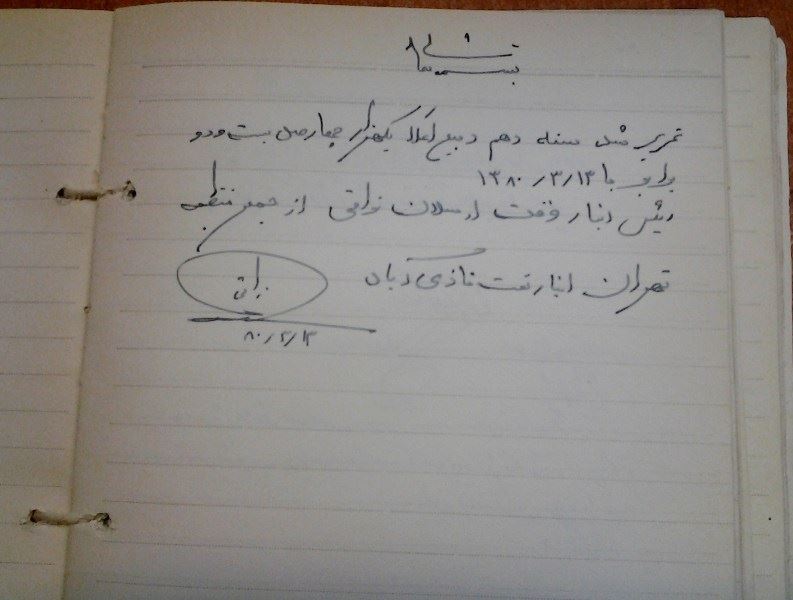 بسمه تعالی
تحریر شد سنه دهم ربیع یکهزار چهارصد بیست و دو
برابر با ۱۳۸۰/۳/۱۳
رئیس انبار وقت ارسلان نراقی از جمعی منطقه
تهران انبار نفت
نراقی
۸۰/۳/۱۳